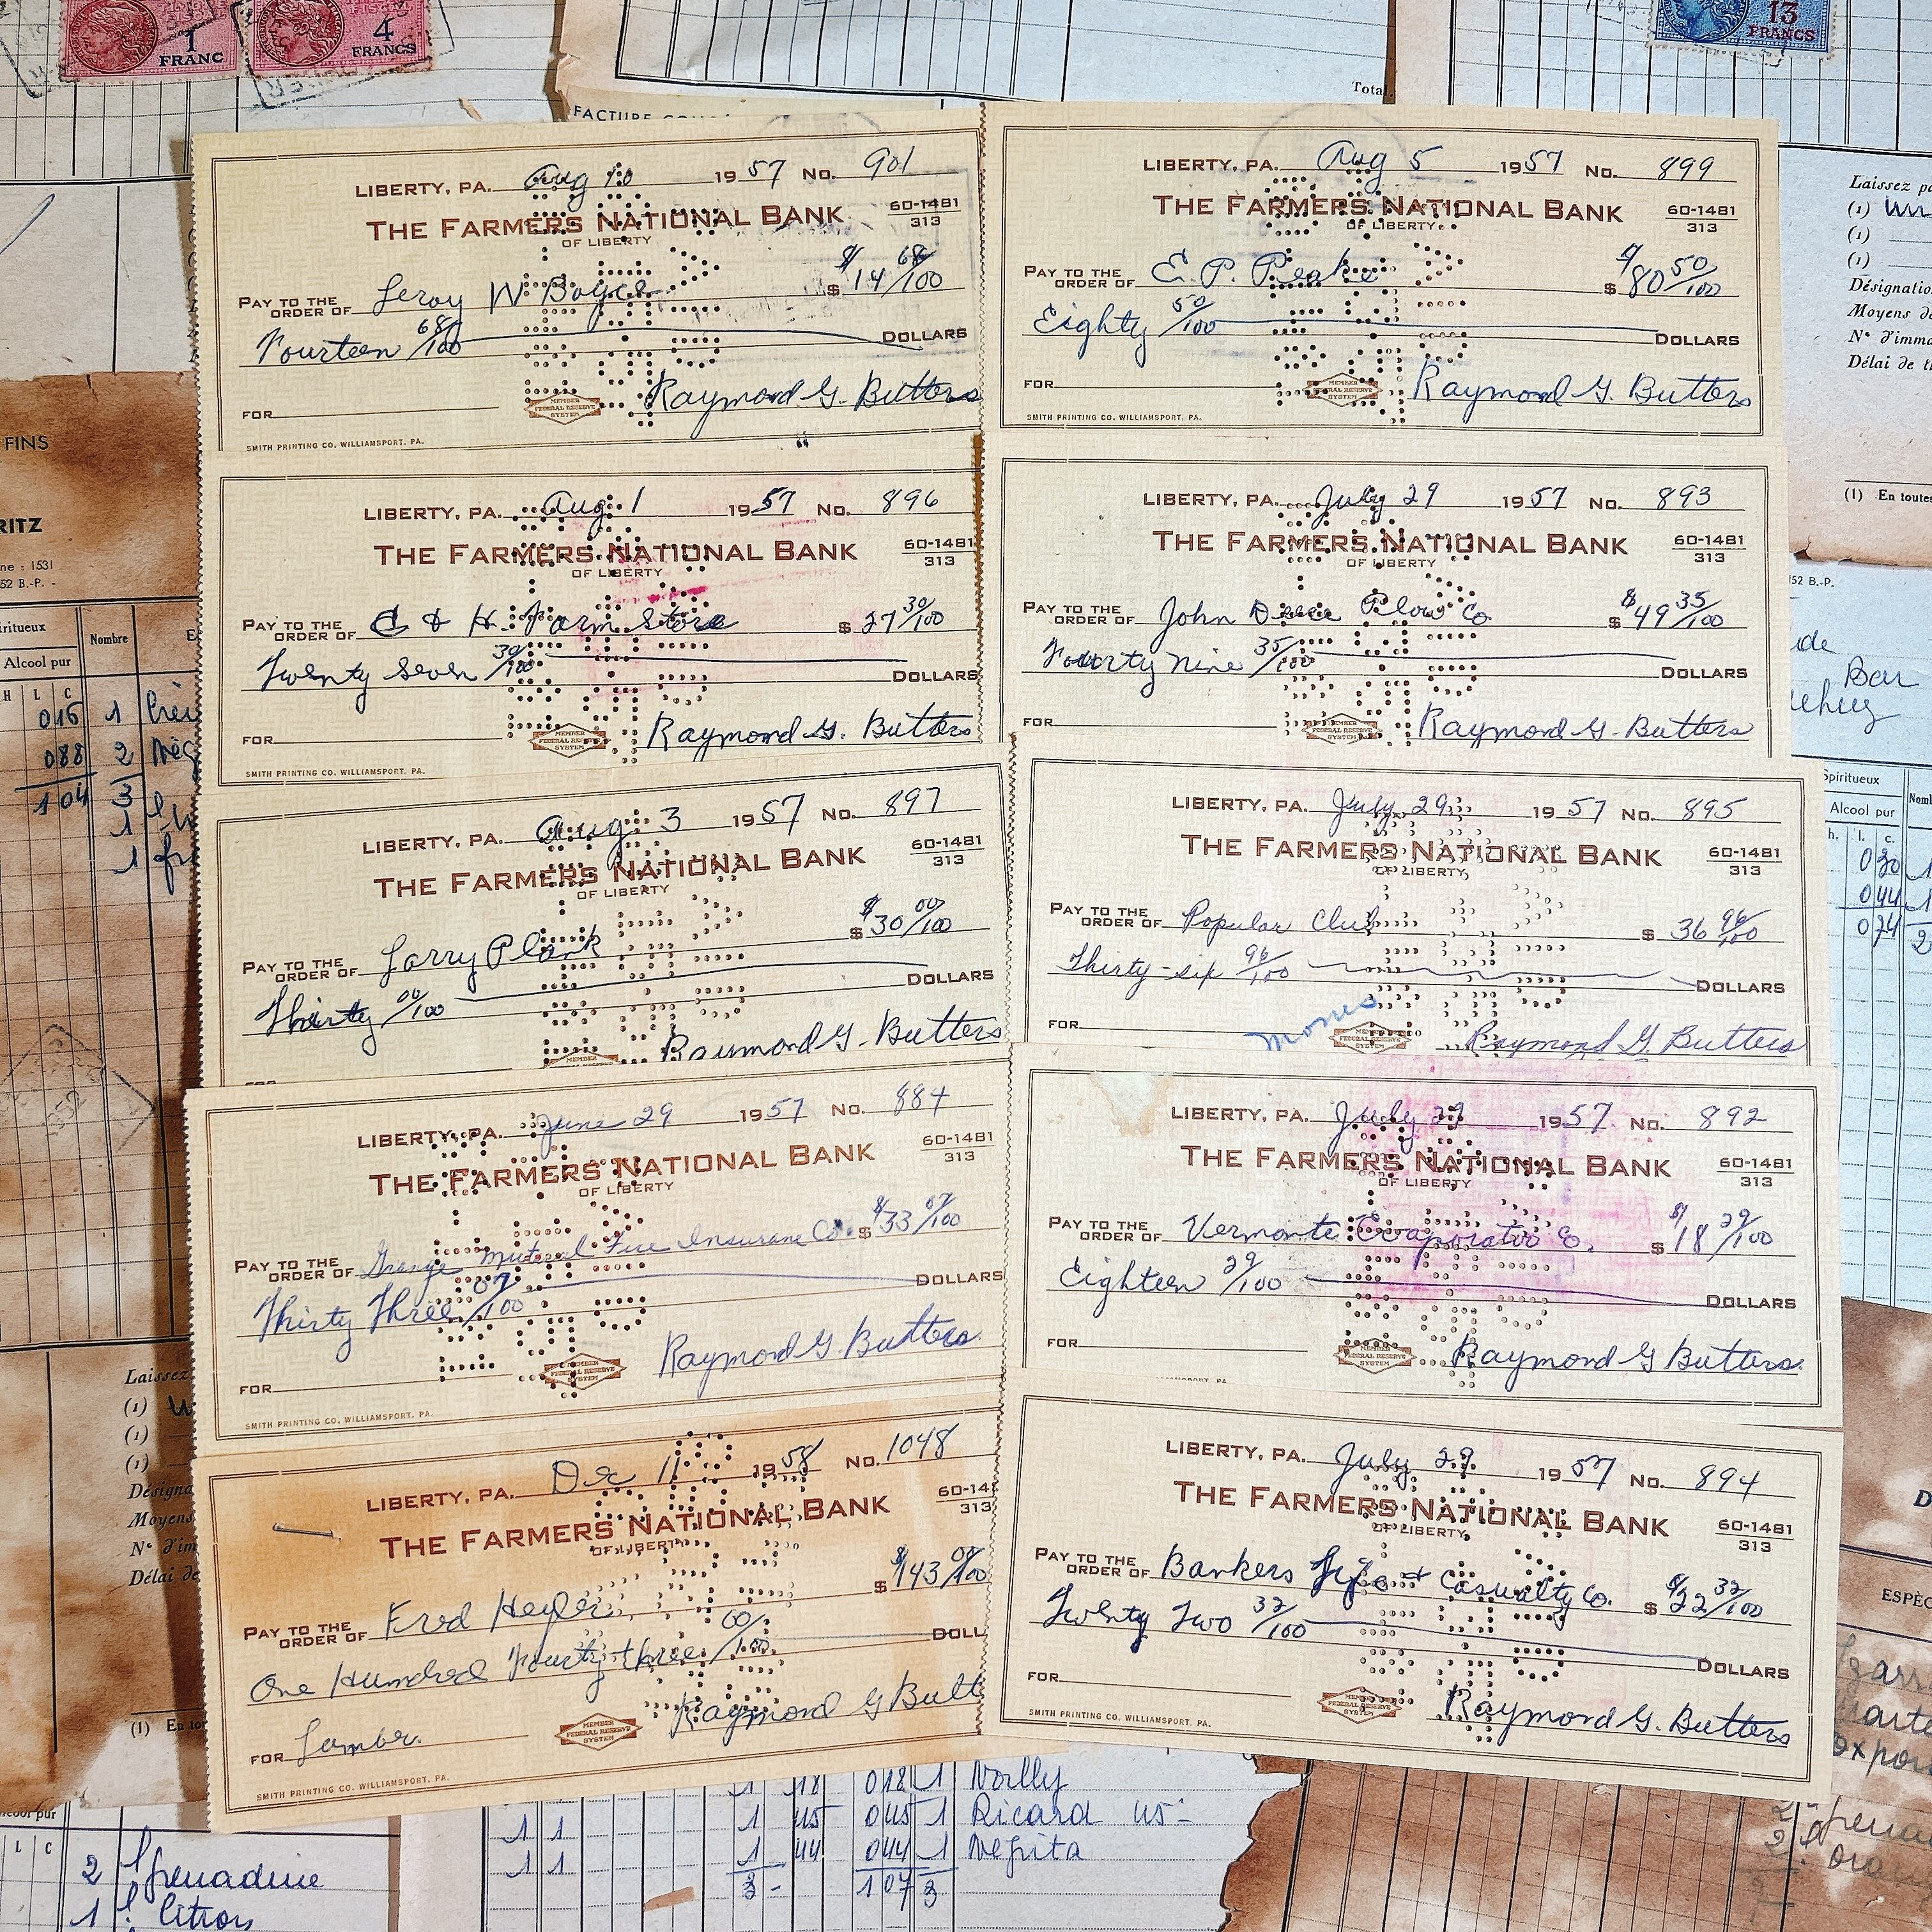 1
FRANC
4
FRANCS
13
FRANCS
Total
FACTURE
LIBERTY, PA. Aug 10 1957 No. 901
THE FARMERS NATIONAL BANK 60-1481
OF LIBERTY 313
PAY TO THE
ORDER OF Leroy W Boyce $ 14 68/100
Fourteen 68/100 DOLLARS
FOR Raymond G. Butters
MEMBER
FEDERAL RESERVE
SYSTEM
SMITH PRINTING CO. WILLIAMSPORT, PA.
LIBERTY, PA. Aug 5 1957 No. 899
THE FARMERS NATIONAL BANK 60-1481
OF LIBERTY 313
PAY TO THE
ORDER OF E. P. Peake $ 80 50/100
Eighty 50/100 DOLLARS
FOR Raymond G. Butters
MEMBER
FEDERAL RESERVE
SYSTEM
SMITH PRINTING CO. WILLIAMSPORT, PA.
LIBERTY, PA. Aug 1 1957 No. 896
THE FARMERS NATIONAL BANK 60-1481
OF LIBERTY 313
PAY TO THE
ORDER OF C & H Farm Store $ 27 30/100
Twenty Seven 30/100 DOLLARS
FOR Raymond G. Butters
MEMBER
FEDERAL RESERVE
SYSTEM
SMITH PRINTING CO. WILLIAMSPORT, PA.
LIBERTY, PA. July 29 1957 No. 893
THE FARMERS NATIONAL BANK 60-1481
OF LIBERTY 313
PAY TO THE
ORDER OF John Deere Plow Co $ 49 35/100
Fourty Nine 35/100 DOLLARS
FOR Raymond G. Butters
MEMBER
FEDERAL RESERVE
SYSTEM
LIBERTY, PA. Aug 3 1957 No. 897
THE FARMERS NATIONAL BANK 60-1481
OF LIBERTY 313
PAY TO THE
ORDER OF Larry Plank $ 30 00/100
Thirty 00/100 DOLLARS
Raymond G. Butters
LIBERTY, PA. July 29 1957 No. 895
THE FARMERS NATIONAL BANK 60-1481
OF LIBERTY 313
PAY TO THE
ORDER OF Popular Club $ 36 96/100
Thirty-six 96/100 DOLLARS
FOR Raymond G. Butters
MEMBER
FEDERAL RESERVE
SYSTEM
LIBERTY, PA. June 29 1957 No. 884
THE FARMERS NATIONAL BANK 60-1481
OF LIBERTY 313
PAY TO THE
ORDER OF Grange Mutual Fire Insurance Co. $ 33 07/100
Thirty Three 07/100 DOLLARS
FOR Raymond G. Butters
MEMBER
FEDERAL RESERVE
SYSTEM
SMITH PRINTING CO. WILLIAMSPORT, PA.
LIBERTY, PA. July 29 1957 No. 892
THE FARMERS NATIONAL BANK 60-1481
OF LIBERTY 313
PAY TO THE
ORDER OF Vermonte Evaporator Co. $ 18 29/100
Eighteen 29/100 DOLLARS
FOR Raymond G Butters
MEMBER
FEDERAL RESERVE
SYSTEM
LIBERTY, PA. Dec 11 1958 No. 1048
THE FARMERS NATIONAL BANK 60-14
OF LIBERTY 313
PAY TO THE
ORDER OF Fred Heyler $ 143 00/100
One Hundred Fourty three 00/100 DOLL
Raymond G Butt
FOR Lumber
MEMBER
FEDERAL RESERVE
SYSTEM
SMITH PRINTING CO. WILLIAMSPORT, PA.
LIBERTY, PA. July 29 1957 No. 894
THE FARMERS NATIONAL BANK 60-1481
OF LIBERTY 313
PAY TO THE
ORDER OF Bankers Life & Casualty Co. $ 22 32/100
Twenty Two 32/100 DOLLARS
FOR Raymond G. Butters
MEMBER
FEDERAL RESERVE
SYSTEM
SMITH PRINTING CO. WILLIAMSPORT, PA.
FINS
RITZ
Nombre
Alcool pur
H L C
016 1
088 2
104 3
Laissez
(1)
(1)
(1)
Moyens
(1) En toutes
de
Bar
Spiritueux
Alcool pur
h. l. c.
030 1
044 1
074 2
1 18 018 1 Noilly
1 1 1 45 045 1 Ricard 45
1 1 1 44 044 1
3 107 3
L C
2 grenadine
1 citron